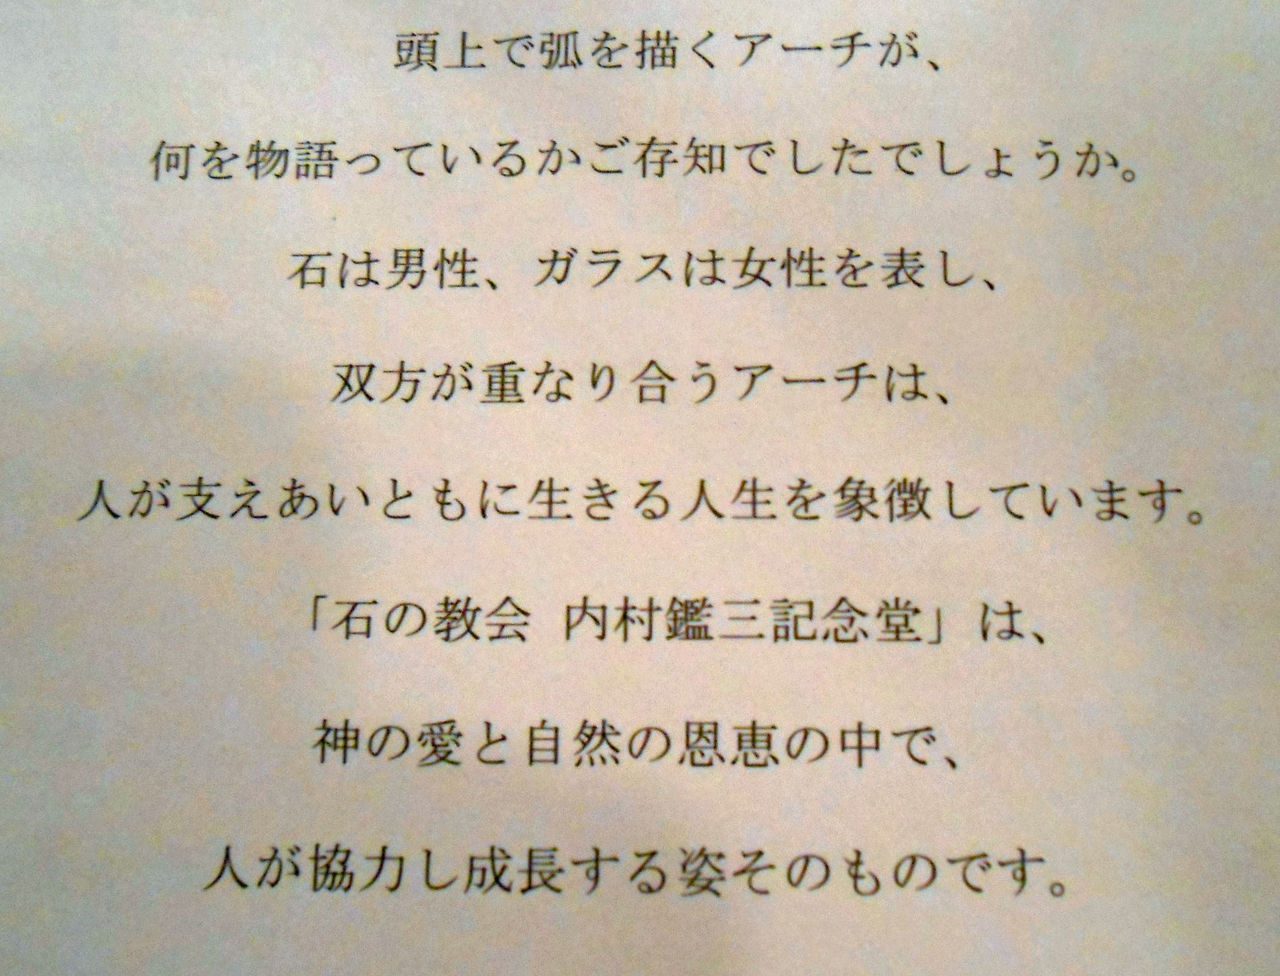 頭上で弧を描くアーチが、
何を物語っているかご存知でしたでしょうか。
石は男性、ガラスは女性を表し、
双方が重なり合うアーチは、
人が支えあいともに生きる人生を象徴しています。
「石の教会 内村鑑三記念堂」は、
神の愛と自然の恩恵の中で、
人が協力し成長する姿そのものです。